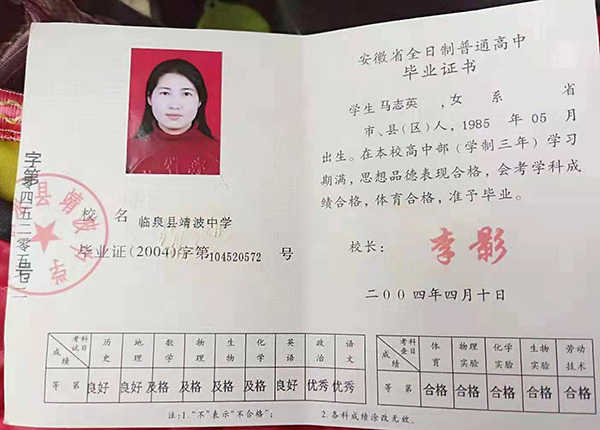 字第一零四五二零五七二号
临泉县靖波中学
校 名 临泉县靖波中学
毕业证(2004)字第104520572 号
科目 考试 成绩 历史 地理 数学 物理 生物 化学 英语 政治 语文
等第 良好 良好 及格 及格 及格 及格 良好 优秀 优秀
注:1."不"表示"不合格";
安徽省全日制普通高中
毕业证书
学生 马志英 ,女 系 省
市、县(区)人,1985 年 05 月
出生。在本校高中部(学制三年)学习
期满,思想品德表现合格,会考学科成
绩合格,体育合格,准予毕业。
校长: 李影
二〇〇四年四月十日
科目 考查 成绩 体育 物理实验 化学实验 生物实验 劳动技术
等第 合格 合格 合格 合格 合格
2.各科成绩涂改无效。